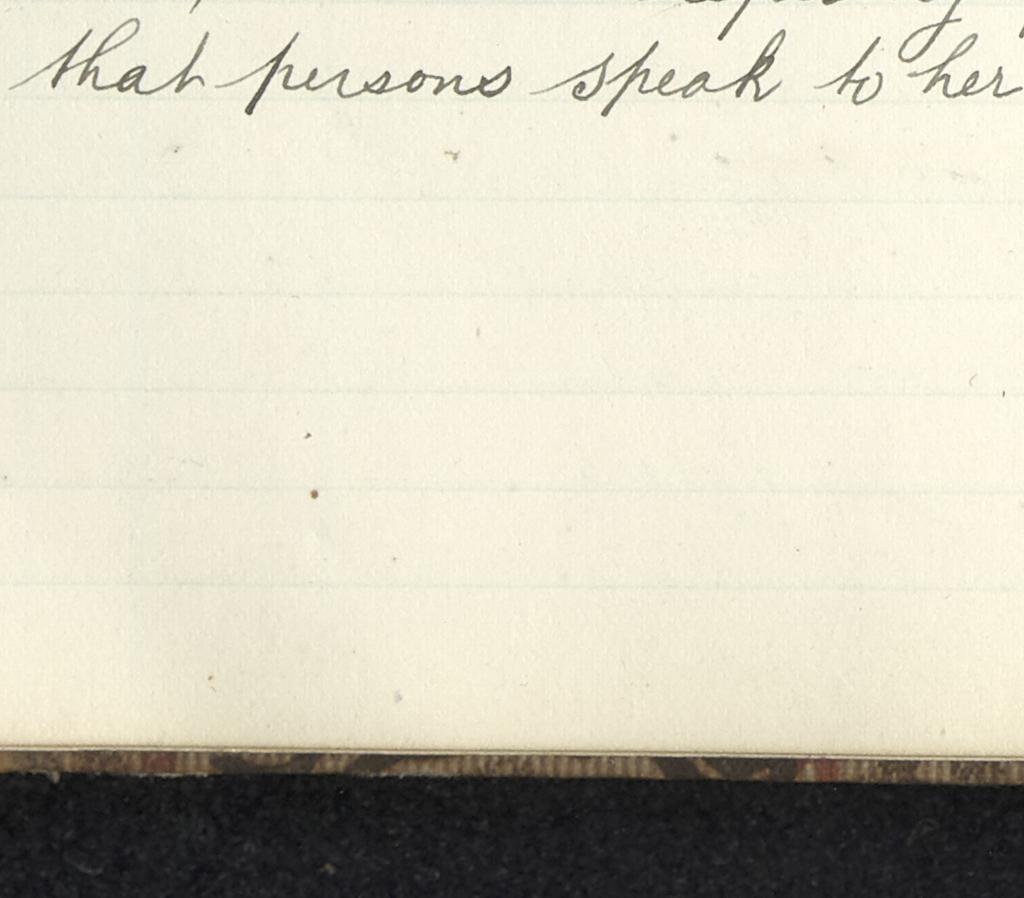 that persons speak to her